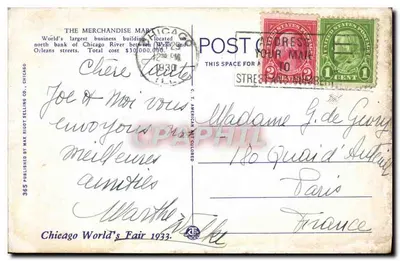 THE MERCHANDISE MART
World's largest business building, located
north bank of Chicago River between Wells
Orleans streets. Total cost $30,000,000.
POST C
THIS SPACE FOR A
CHICAGO
1930
ILL.
ADDRESS
YOUR MAIL
TO
STREET AND NUMBER
1 CENT 1
Chère
Joe & moi vous
envoyons nos
meilleures
amitiés
Marthe
Madame G. de
180 Quai d'Auteuil
Paris
France
365 PUBLISHED BY MAX RIGOT SELLING CO., CHICAGO
C. T. AMERICAN ART COLORED
Chicago World's Fair 1933.
PRCARTE